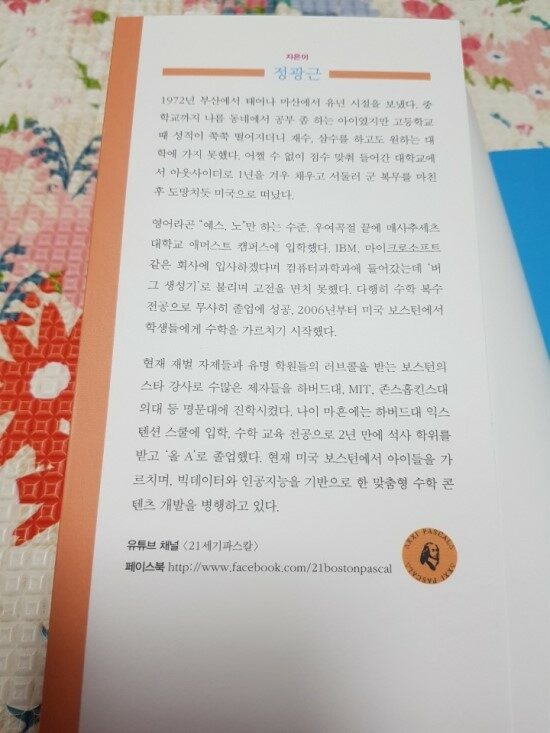 지은이
정광근
1972년 부산에서 태어나 마산에서 유년 시절을 보냈다. 중
학교까지 나름 동네에서 공부 좀 하는 아이였지만 고등학교
때 성적이 쭉쭉 떨어지더니 재수, 삼수를 하고도 원하는 대
학에 가지 못했다. 어쩔 수 없이 점수 맞춰 들어간 대학교에
서 아웃사이더로 1년을 겨우 채우고 서둘러 군 복무를 마친
후 도망치듯 미국으로 떠났다.
영어라곤 “예스, 노”만 하는 수준. 우여곡절 끝에 매사추세츠
대학교 애머스트 캠퍼스에 입학했다. IBM, 마이크로소프트
같은 회사에 입사하겠다며 컴퓨터과학과에 들어갔는데 ‘버
그 생성기’로 불리며 고전을 면치 못했다. 다행히 수학 복수
전공으로 무사히 졸업에 성공, 2006년부터 미국 보스턴에서
학생들에게 수학을 가르치기 시작했다.
현재 재벌 자제들과 유명 학원들의 러브콜을 받는 보스턴의
스타 강사로 수많은 제자들을 하버드대, MIT, 존스홉킨스대
의대 등 명문대에 진학시켰다. 나이 마흔에는 하버드대 익스
텐션 스쿨에 입학, 수학 교육 전공으로 2년 만에 석사 학위를
받고 ‘올 A’로 졸업했다. 현재 미국 보스턴에서 아이들을 가
르치며, 빅데이터와 인공지능을 기반으로 한 맞춤형 수학 콘
텐츠 개발을 병행하고 있다.
유튜브 채널 〈21세기파스칼〉
페이스북 http://www.facebook.com/21bostonpascal
PASCAL
PASCAL